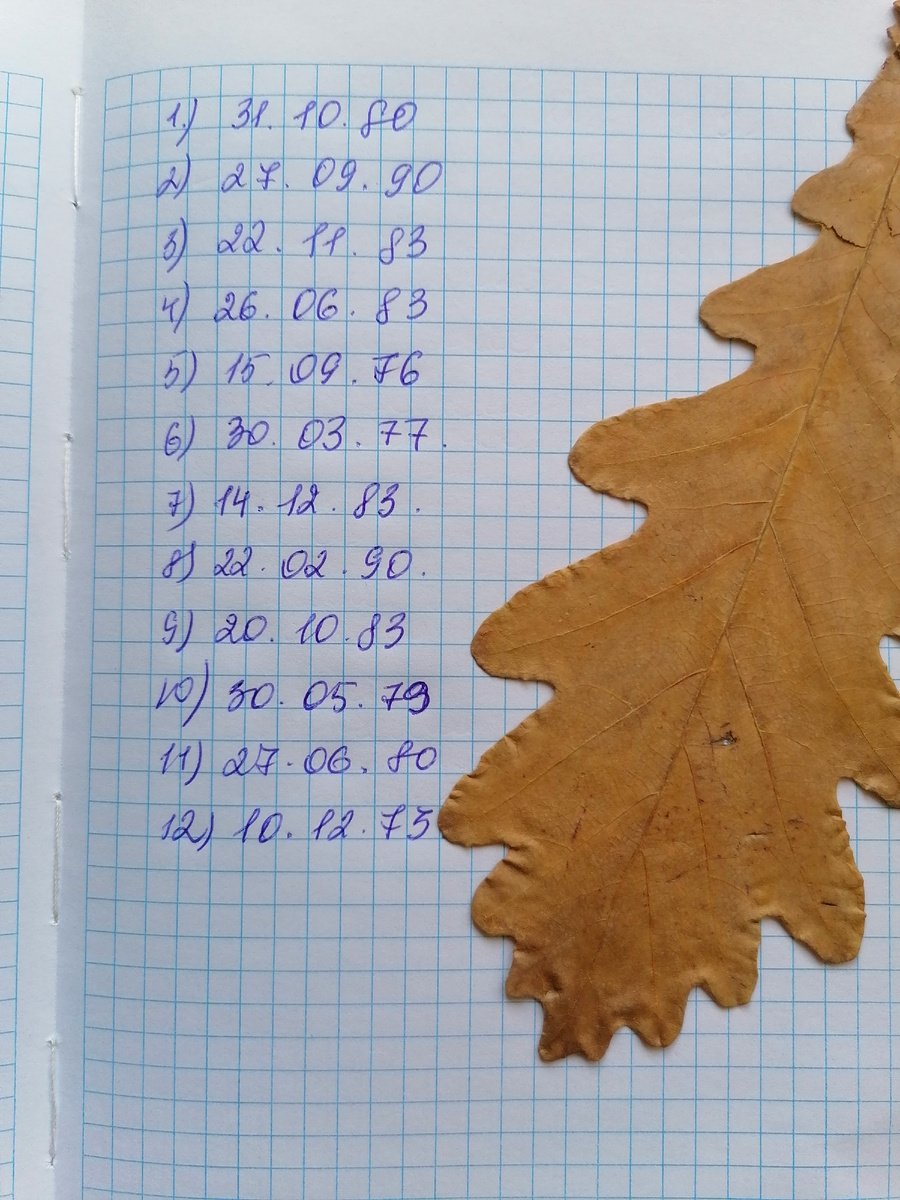 1.) 31. 10. 80
2) 27. 09. 90
3) 22. 11. 83
4) 26. 06. 83
5) 15. 09. 76
6) 30. 03. 77.
7) 14. 12. 83.
8) 22. 02. 90.
9) 20. 10. 83
10) 30. 05. 79
11) 27. 06. 80
12) 10. 12. 75